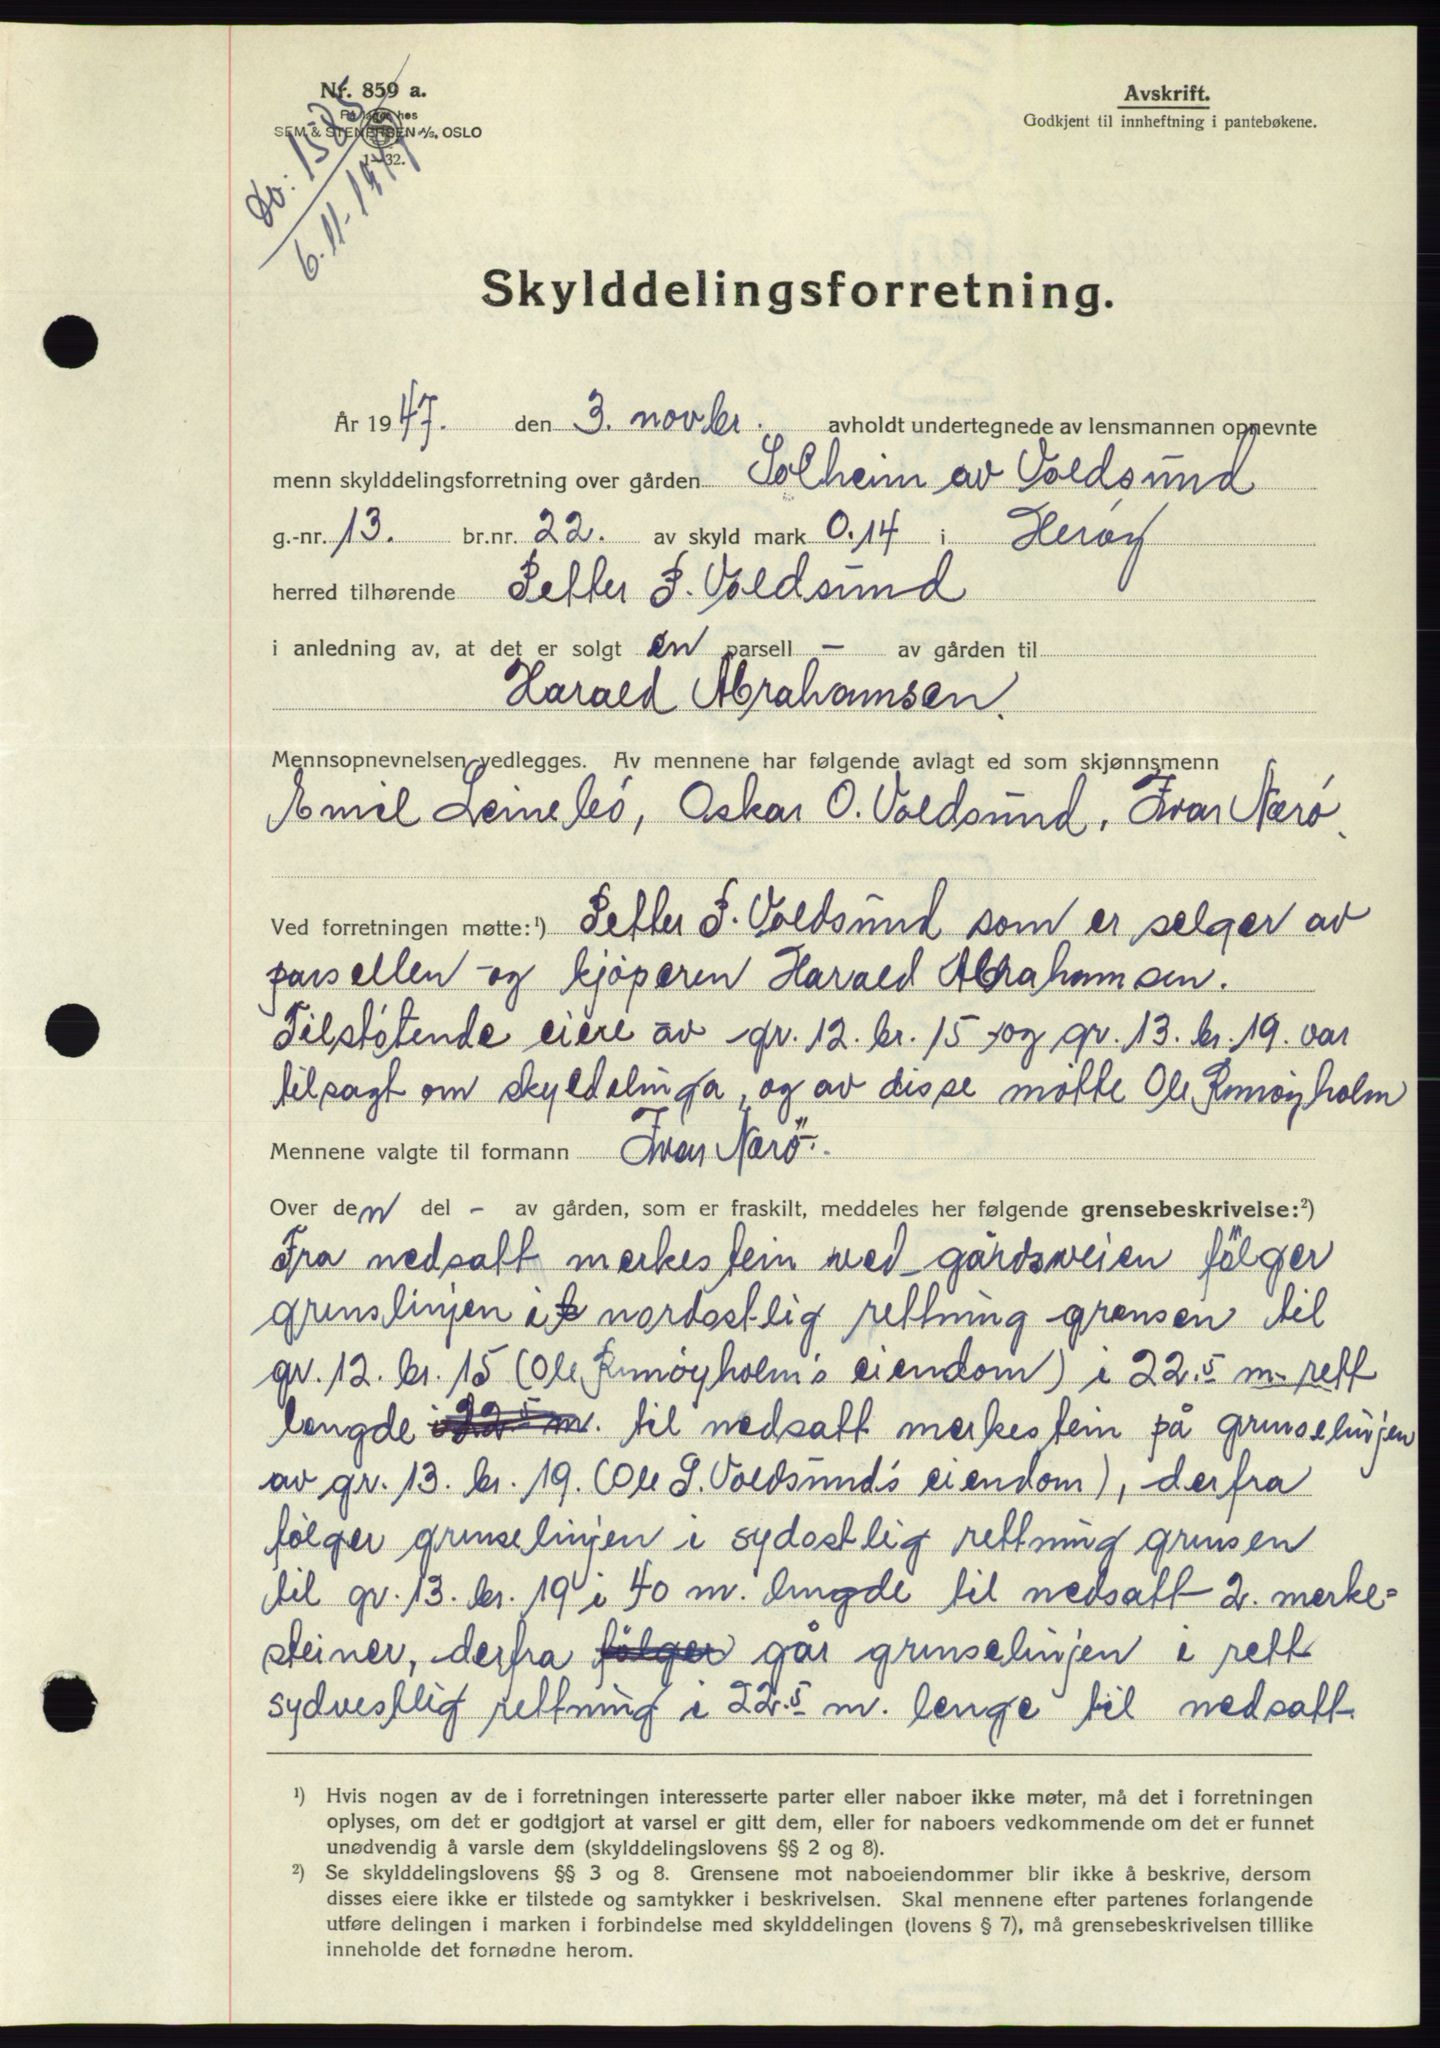 Nr. 859 a.
På lager hos
SEM & STENERSEN A/S, OSLO
1—32.
Nr: 1525
6.11-1947
Avskrift.
Godkjent til innheftning i pantebøkene.
Skylddelingsforretning.
År 1947. den 3. novbr. avholdt undertegnede av lensmannen opnevnte
menn skylddelingsforretning over gården Solheim av Voldsund
g.-nr. 13. br.nr. 22. av skyld mark 0.14 i Herøy
herred tilhørende Petter P. Voldsund
i anledning av, at det er solgt en parsell - av gården til
Harald Abrahamsen.
Mennsopnevnelsen vedlegges. Av mennene har følgende avlagt ed som skjønnsmenn
Emil Leinebö, Oskar O. Voldsund, Ivar Nærö.
Ved forretningen møtte:¹) Petter P. Voldsund som er selger av
parsellen og kjöperen Harald Abrahamsen.
Tilstötende eiere av gr. 12. br. 15 og gr. 13. br. 19. var
tilsagt om skyldelinga, og av disse mötte Ole Remöyholm
Mennene valgte til formann Ivar Nærö.
Over den del - av gården, som er fraskilt, meddeles her følgende grensebeskrivelse:²)
Fra nedsatt merkestein ved gårdsveien fölger
grenslinjen i nordostlig rettning grensen til
gr. 12. br. 15 (Ole Remöyholm's eiendom) i 22.5 m. rett
lengde i 22.5 m. til nedsatt merkestein på grenselinjen
av gr. 13. br. 19. (Ole S. Voldsund's eiendom), derfra
fölger grenselinjen i sydostlig rettning grensen
til gr. 13. br. 19 i 40 m. lengde til nedsatt 2. merke=
steiner, derfra fölger går grenselinjen i rett
sydvestlig rettning i 22.5 m. lenge til nedsatt
¹) Hvis nogen av de i forretningen interesserte parter eller naboer ikke møter, må det i forretningen
oplyses, om det er godtgjort at varsel er gitt dem, eller for naboers vedkommende om det er funnet
unødvendig å varsle dem (skylddelingslovens §§ 2 og 8).
²) Se skylddelingslovens §§ 3 og 8. Grensene mot naboeiendommer blir ikke å beskrive, dersom
disses eiere ikke er tilstede og samtykker i beskrivelsen. Skal mennene efter partenes forlangende
utføre delingen i marken i forbindelse med skylddelingen (lovens § 7), må grensebeskrivelsen tillike
inneholde det fornødne herom.